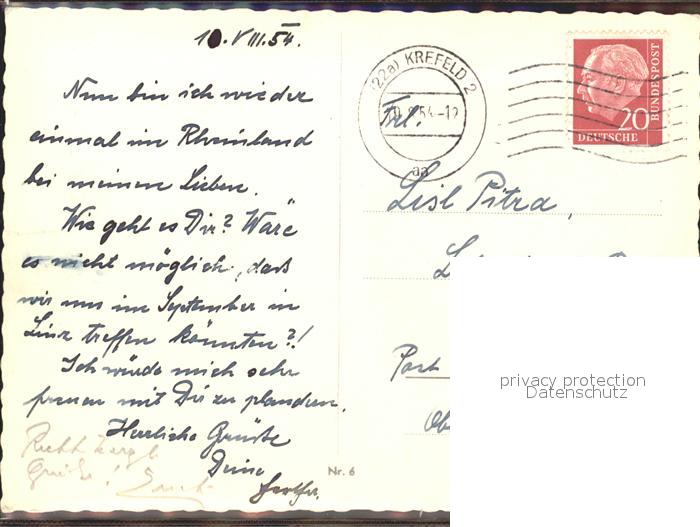 10.VIII.54.
Nun bin ich wieder
einmal im Rheinland
bei meinen Lieben.
Wie geht es Dir? Wäre
es nicht möglich, daß
wir uns im September in
Linz treffen könnten?!
Ich würde mich sehr
freuen mit Dir zu plaudern.
Herzliche Grüße
Deine
Recht herzl.
Grüße!
Nr. 6
(22a) KREFELD 2
54-12
aa
20
DEUTSCHE
BUNDESPOST
Frl.
Lisl Pitra,
Post
privacy protection
Datenschutz